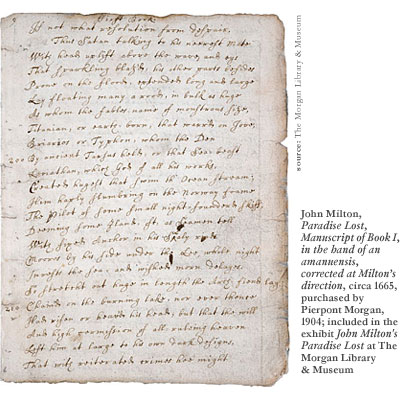 First Book
If not what resolution from despaire.
Thus Satan talking to his neerest mate
With head uplift above the wave, and eyes
That sparkling blaz'd, his other parts besides
Prone on the flood, extended long and large
Lay floating many a rood, in bulk as huge
As whom the fables name of monstrous size,
Titanian, or earth born, that warrd on Jove,
Briarios or Typhon, whom the Den
200 By ancient Tarsus held, or that Sea beast
Leviathan, which God of all his works
Created hugest that swim th' Ocean stream:
Him haply slumbring on the Norway foame
The Pilot of some small night-founderd skiff,
Deeming some Iland, oft, as Seamen tell
With fixed Anchor in his skaly rind
Moores by his side under the Lee while night
Invests the Sea, and wished morn delayes:
So stretcht out huge in length the Arch fiend lay
210 Chaind on the burning lake, nor ever thence
Had risen or heav'd his head, but that the will
And high permission of all ruling heaven
Left him at large to his own dark designs,
That with reiterated crimes hee might
source: The Morgan Library & Museum
John Milton,
Paradise Lost,
Manuscript of Book I,
in the hand of an
amanuensis,
corrected at Milton's
direction, circa 1665,
purchased by
Pierpont Morgan,
1904; included in the
exhibit John Milton's
Paradise Lost at The
Morgan Library
& Museum